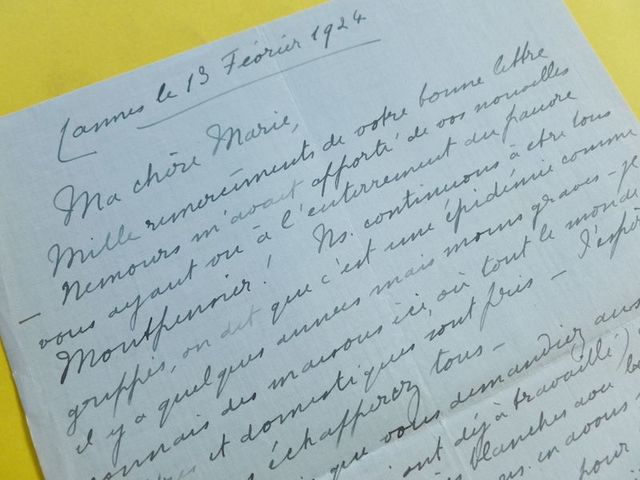 Cannes le 13 Février 1924
Ma chère Marie,
Mille remerciments de votre bonne lettre
— Nemours m'avait apporté de vos nouvelles
vous ayant vu à l'enterrement du pauvre
Montpensier! Ns. continuons à etre tous
grippés, on dit que c'est une épidémie comme
il y a quelques années mais moins graves - je
connais des maisons ici, où tout le monde
et domestiques sont pris — J'espère
échapperez tous —
que vous demandiez aus
ont déjà travaillé)
blanches aou be
ns. en avons
pour